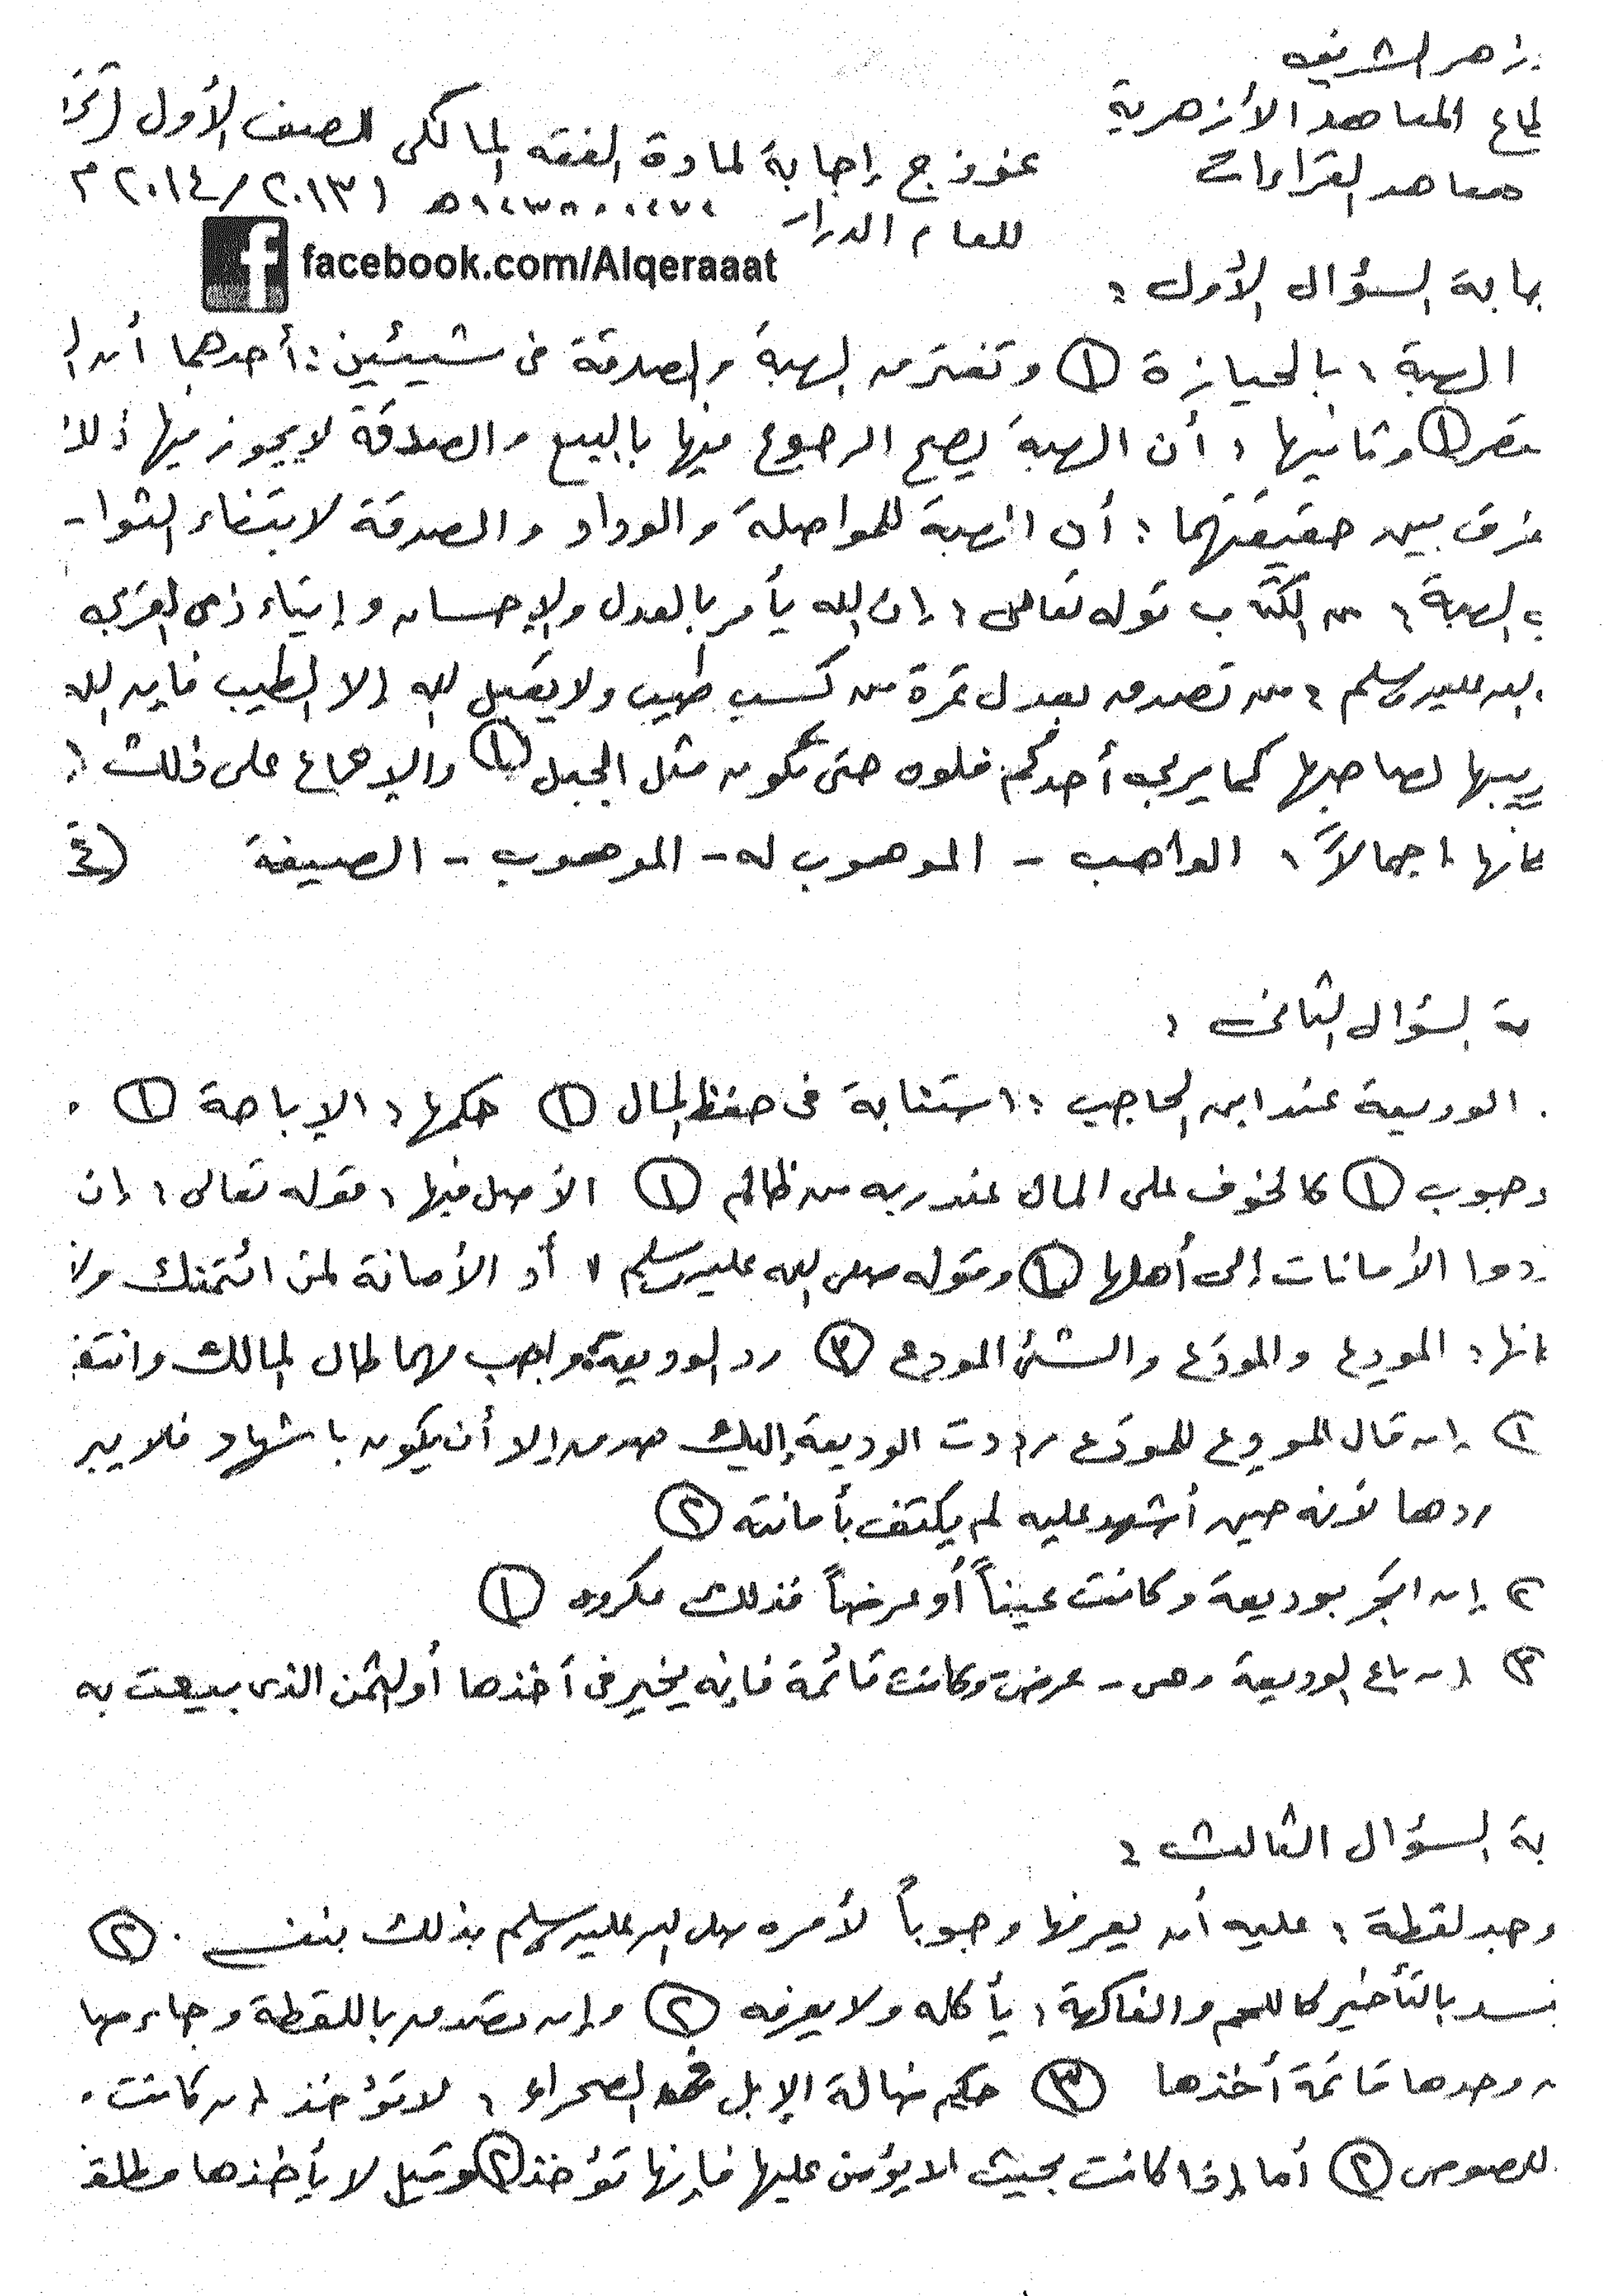 زهر الشريف
المعاهد الأزهرية
معاهد القراءات
نموذج إجابة لمادة الفقه المالكى للصف الأول
للعام الدراسى ٢٠١٣/٢٠١٤ م
facebook.com/Alqeraaat
جابة السؤال الأول :
الهبة : بالحيازة (١) وتفترق الهبة والصدقة فى شيئين : أحدهما أن ا
تصر (١) وثانيها : أن الهبة يصح الرجوع فيها بالبيع والصدقة لا يجوز فيها ذلك
فرق بين حقيقتهما : أن الهبة للمواصلة والوداد والصدقة لابتغاء الثوا
الهبة : من الكتاب قوله تعالى : إن الله يأمر بالعدل والإحسان وإيتاء ذى القربى
الله عليه وسلم : من تصدق بعدل تمرة من كسب طيب ولا يقبل الله إلا الطيب فإن الله
يربيها لصاحبها كما يربى أحدكم فلوه حتى تكون مثل الجبل (١) والإجماع على ذلك (١
كانها إجمالاً : الواهب - الموهوب له - الموهوب - الصيغة
بة السؤال الثانى :
. الوديعة عند ابن الحاجب : استنابة فى حفظ المال (١) حكمها : الإباحة (١) .
وجوب (١) كالخوف على المال عند ربه من ظالم (١) الأصل فيها : قوله تعالى : إن
ردوا الأمانات إلى أهلها (١) وقوله صلى الله عليه وسلم " أد الأمانة لمن ائتمنك ولا
كانها : المودِع والمودَع والشئ المودع (٣) رد الوديعة واجب مهما طال المالك وانتف
١) إن قال المودع للمودع رددت الوديعة إليك صدق إلا أن يكون باشهاد فلا يبر
ردها لأنه حين أشهد عليه لم يكتف بأمانته (٢)
٢) إن اتجر بوديعة وكانت عيناً أو عرضاً فذلك مكروه (١)
٣) إن باع الوديعة وهى - عرض وكانت قائمة فإنه يخير فى أخذها أو الثمن الذى بيعت به
بة السؤال الثالث :
وجد لقطة : عليه أن يعرفها وجوباً لأمره صلى الله عليه وسلم بذلك بنفسه . (٢)
فسد بالتأخير كاللحم والفاكهة : يأكله ولا يعرفه (٢) وإن تصدق باللقطة وجاء ربها
ن وجدها قائمة أخذها (٣) حكم ضالة الإبل فى الصحراء : لا تؤخذ إن كانت .
للصوص (٢) أما إذا كانت بحيث لا يؤمن عليها فإنها تؤخذ (٢) وقيل لا يأخذها مطلقا